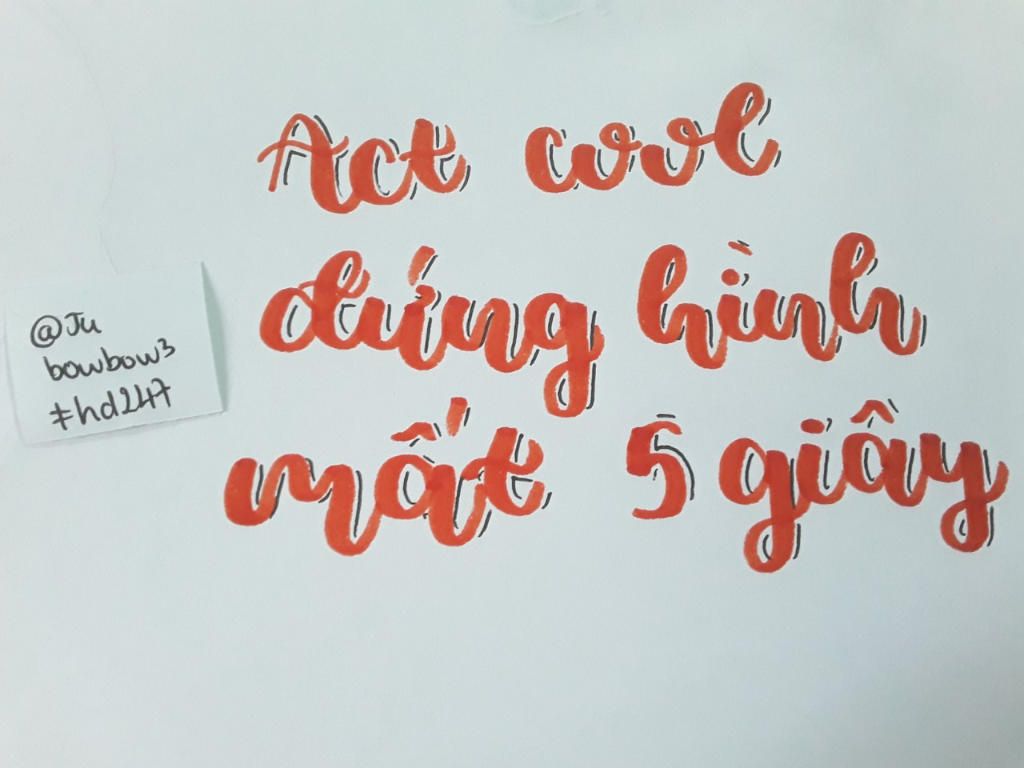 Act cool
đứng hình
mất 5 giây
@Ju
bowbow3
#hd247